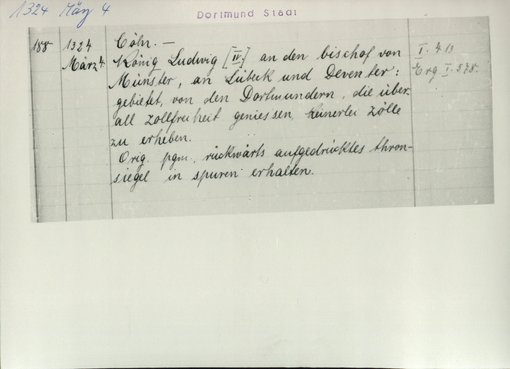 1324 März 4
Dortmund Stadt
188 1324 Cöln. —
März 4. König Ludwig [IV] an den bischof von I. 413
Münster, an Lübeck und Deventer: Erg I. 378.
gebietet, von den Dortmundern, die über
all zollfreiheit geniessen, keinerlei zölle
zu erheben.
Orig. pgm., rückwärts aufgedrücktes thron-
siegel in spuren erhalten.